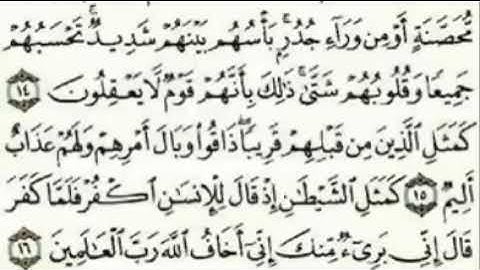 مُّحَصَّنَةٍ أَوْ مِن وَرَآءِ جُدُرٍۭ ۚ بَأْسُهُم بَيْنَهُمْ شَدِيدٌ ۚ تَحْسَبُهُمْ
جَمِيعًا وَقُلُوبُهُمْ شَتَّىٰ ۚ ذَٰلِكَ بِأَنَّهُمْ قَوْمٌ لَّا يَعْقِلُونَ ١٤
كَمَثَلِ ٱلَّذِينَ مِن قَبْلِهِمْ قَرِيبًا ۖ ذَاقُوا۟ وَبَالَ أَمْرِهِمْ وَلَهُمْ عَذَابٌ
أَلِيمٌ ١٥ كَمَثَلِ ٱلشَّيْطَٰنِ إِذْ قَالَ لِلْإِنسَٰنِ ٱكْفُرْ فَلَمَّا كَفَرَ
قَالَ إِنِّى بَرِىٓءٌ مِّنكَ إِنِّىٓ أَخَافُ ٱللَّهَ رَبَّ ٱلْعَٰلَمِينَ ١٦